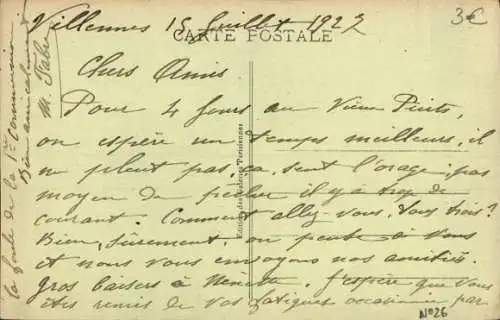 Villennes 15 Juillet 1922
3€
CARTE POSTALE
Chers Amis
Pour 4 jours au Vieux Puits,
on espère un temps meilleurs, il
ne pleut pas, ça sent l'orage, pas
moyen de pêcher il y a trop de
courant. Comment allez-vous, tous trois?
Bien, sûrement, on pense à vous
et nous vous envoyons nos amitiés.
gros baisers à Ninette. J'espère que vous
êtes remis de vos fatigues occasionné par
la foule de la 1re Communion
Bien amicalement
M. Fabre
Editions des Galeries Parisiennes
No26